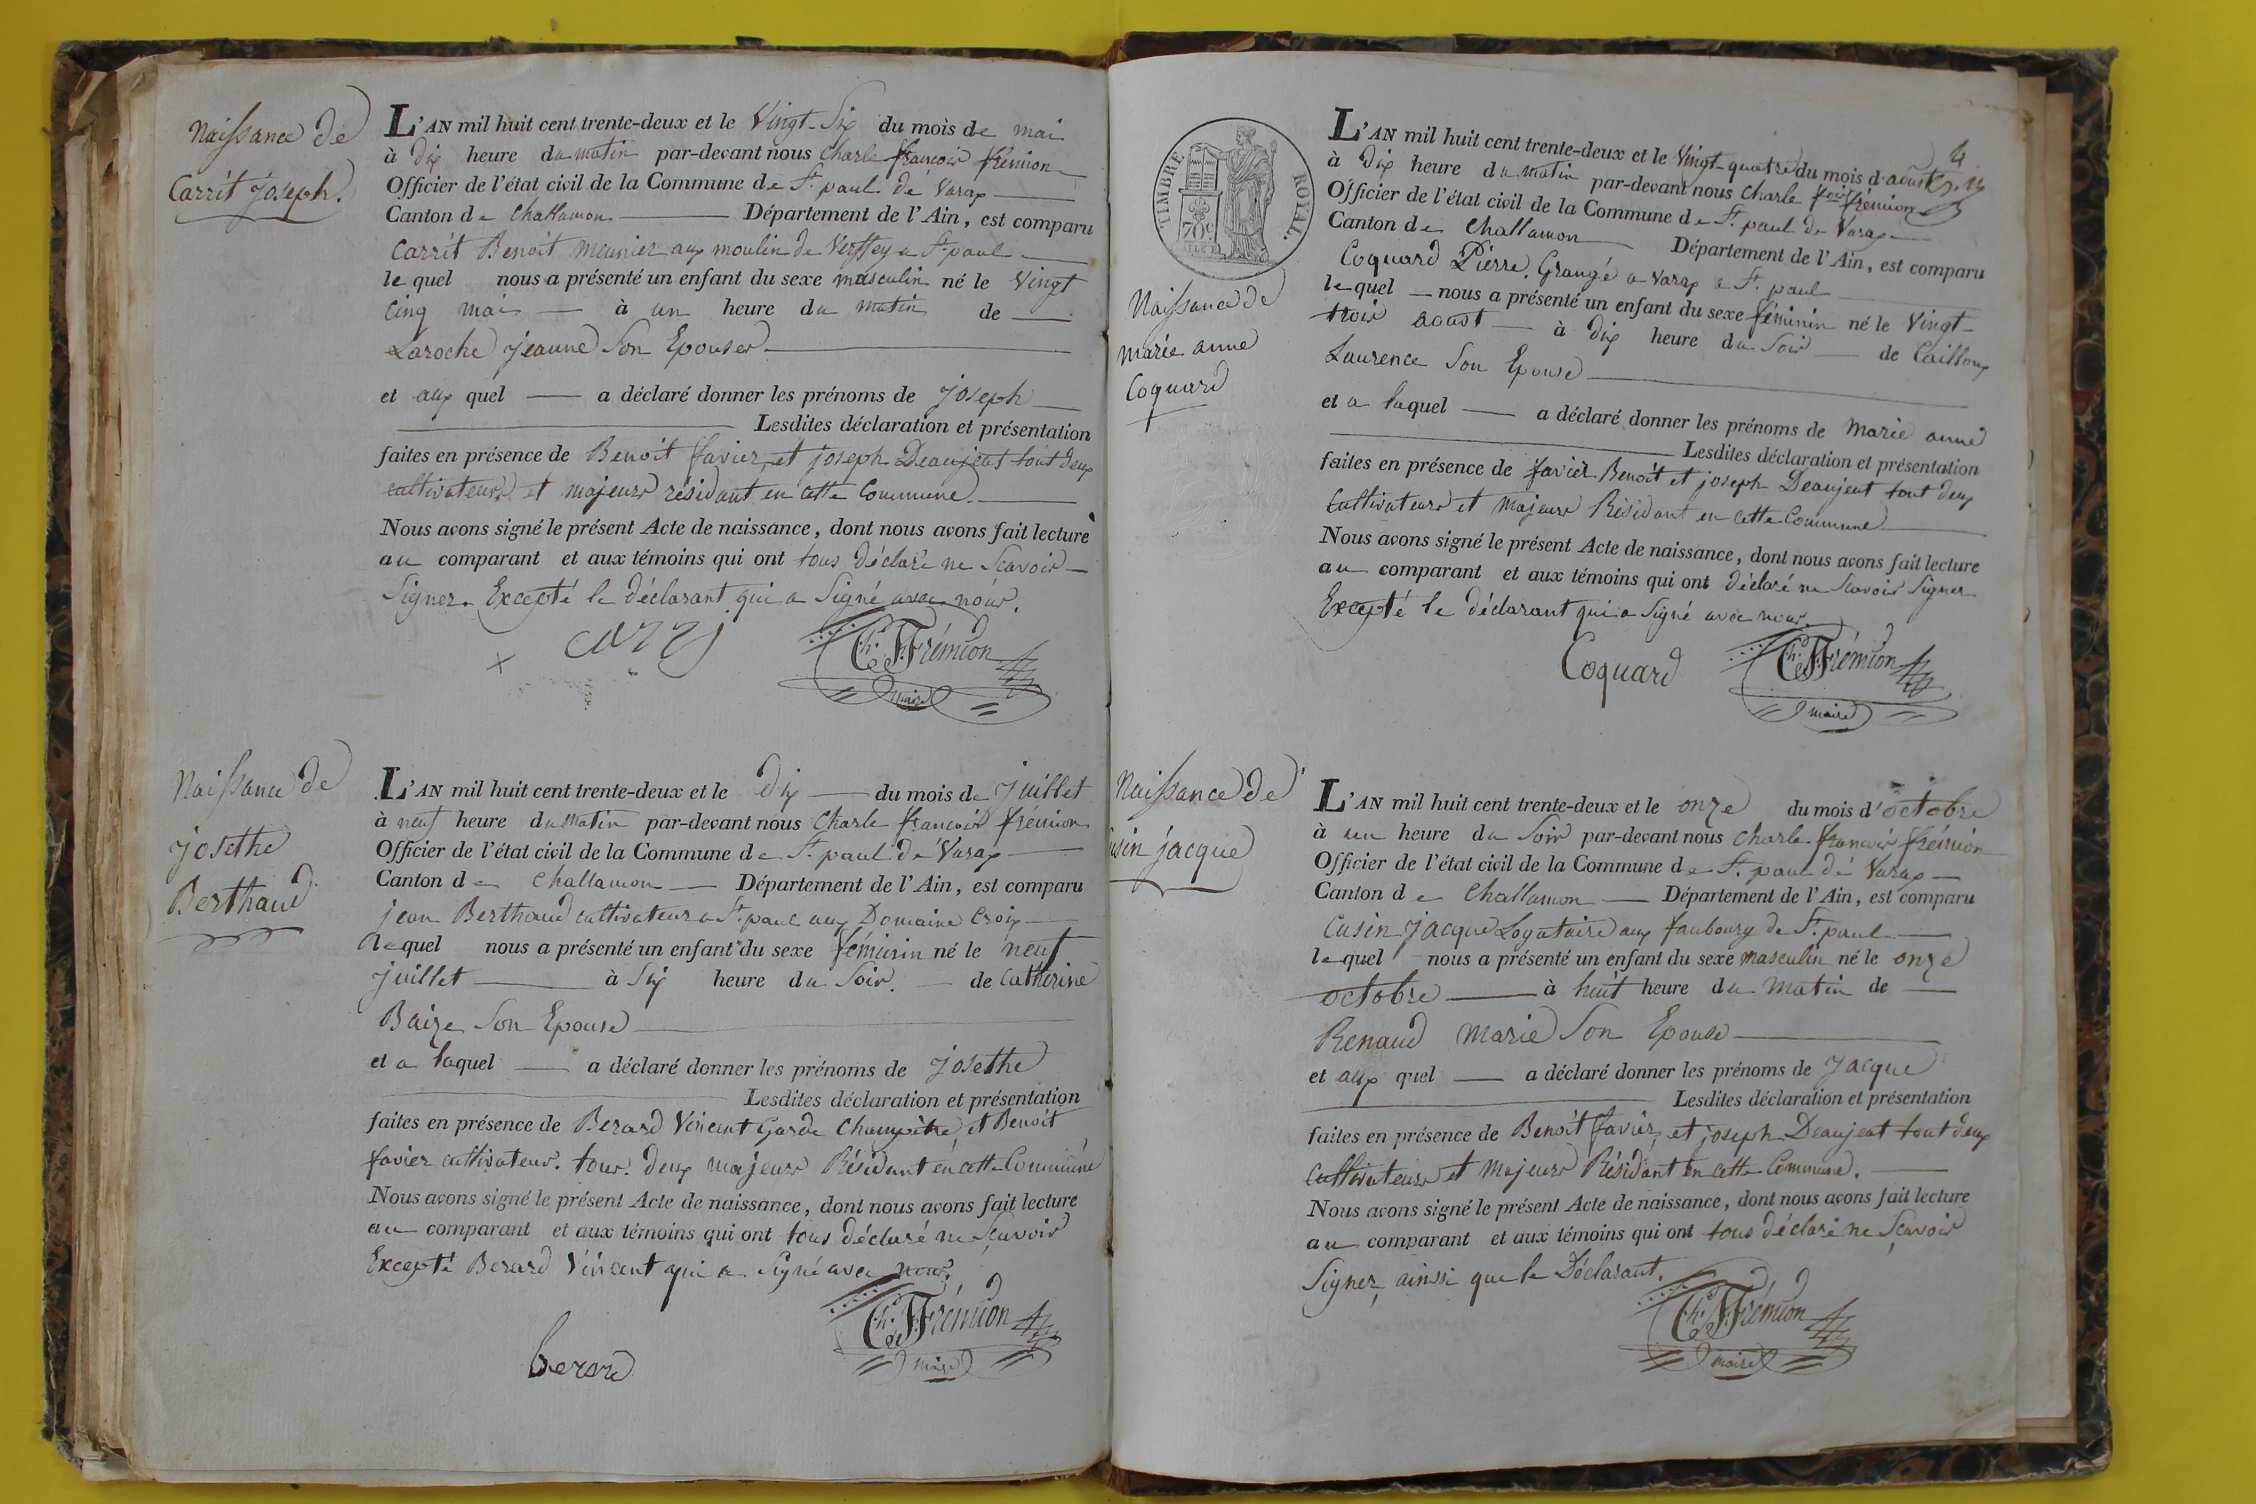 Naissance de
Carrit joseph.
L'AN mil huit cent trente-deux et le Vingt-Six du mois de mai
à dix heure du matin par-devant nous Charle françois frémion
Officier de l'état civil de la Commune de St. paul de Varax
Canton de Challamon Département de l'Ain, est comparu
Carrit Benoit meunier aux moulin de Verssey a St. paul
le quel nous a présenté un enfant du sexe masculin né le Vingt
Cinq mai à un heure du matin de
Laroche jeanne Son Epouse
et aux quel a déclaré donner les prénoms de joseph
Lesdites déclaration et présentation
faites en présence de Benoit favier, et joseph Deaujeat tout deux
cultivateurs et majeurs résidant en cette Commune.
Nous avons signé le présent Acte de naissance, dont nous avons fait lecture
au comparant et aux témoins qui ont tous déclaré ne Scavoir
Signer. Excepté le déclarant qui a Signé avec nous.
Ch. F. Frémion
maire
Naissance de
josethe
Berthaud
L'AN mil huit cent trente-deux et le dix du mois de juillet
à neuf heure du matin par-devant nous Charle françois frémion
Officier de l'état civil de la Commune de St. paul de Varax
Canton de Challamon Département de l'Ain, est comparu
jean Berthaud cultivateur a St. paul aux Domaine Croix
le quel nous a présenté un enfant du sexe féminin né le neuf
juillet à Six heure du Soir. de Catherine
Baize Son Epouse
et a laquel a déclaré donner les prénoms de josethe
Lesdites déclaration et présentation
faites en présence de Berard Vincent Garde Champètre, et Benoit
favier cultivateur. tous deux majeurs Résidant en cette Commune
Nous avons signé le présent Acte de naissance, dont nous avons fait lecture
au comparant et aux témoins qui ont tous déclaré ne Scavoir
Excepté Berard Vincent qui a Signé avec nous.
Ch. F. Frémion
maire
berard
TIMBRE ROYAL.
70c
Naissance de
marie anne
Coquard
L'AN mil huit cent trente-deux et le Vingt-quatre du mois d'aoust
à dix heure du matin par-devant nous Charle fois frémion
Officier de l'état civil de la Commune de St. paul de Varax
Canton de Challamon Département de l'Ain, est comparu
Coquard Pierre, Grangé a Varax a St. paul
le quel nous a présenté un enfant du sexe féminin né le Vingt-
trois aoust à dix heure du Soir de Cailloux
Laurence Son Epouse
et a laquel a déclaré donner les prénoms de marie anne
Lesdites déclaration et présentation
faites en présence de favier Benoit et joseph Deaujeat tout deux
Cultivateurs et majeurs Résidant en cette Commune
Nous avons signé le présent Acte de naissance, dont nous avons fait lecture
au comparant et aux témoins qui ont déclaré ne Scavoir Signer
Excepté le déclarant qui a Signé avec nous.
Coquard
Ch. F. Frémion
maire
Naissance de
usin jacque
L'AN mil huit cent trente-deux et le onze du mois d'octobre
à un heure du Soir par-devant nous Charle françois frémion
Officier de l'état civil de la Commune de St. paul de Varax
Canton de Challamon Département de l'Ain, est comparu
Cusin jacque Logataire aux faubourg de St. paul
le quel nous a présenté un enfant du sexe masculin né le onze
octobre à huit heure du Matin de
Renaud Marie Son Epouse
et aux quel a déclaré donner les prénoms de jacque
Lesdites déclaration et présentation
faites en présence de Benoit favier, et joseph Deaujeat tout deux
Cultivateurs et Majeurs Résidant en cette Commune.
Nous avons signé le présent Acte de naissance, dont nous avons fait lecture
au comparant et aux témoins qui ont tous déclaré ne Scavoir
Signer, ainsi que le Déclarant.
Ch. F. Frémion
maire